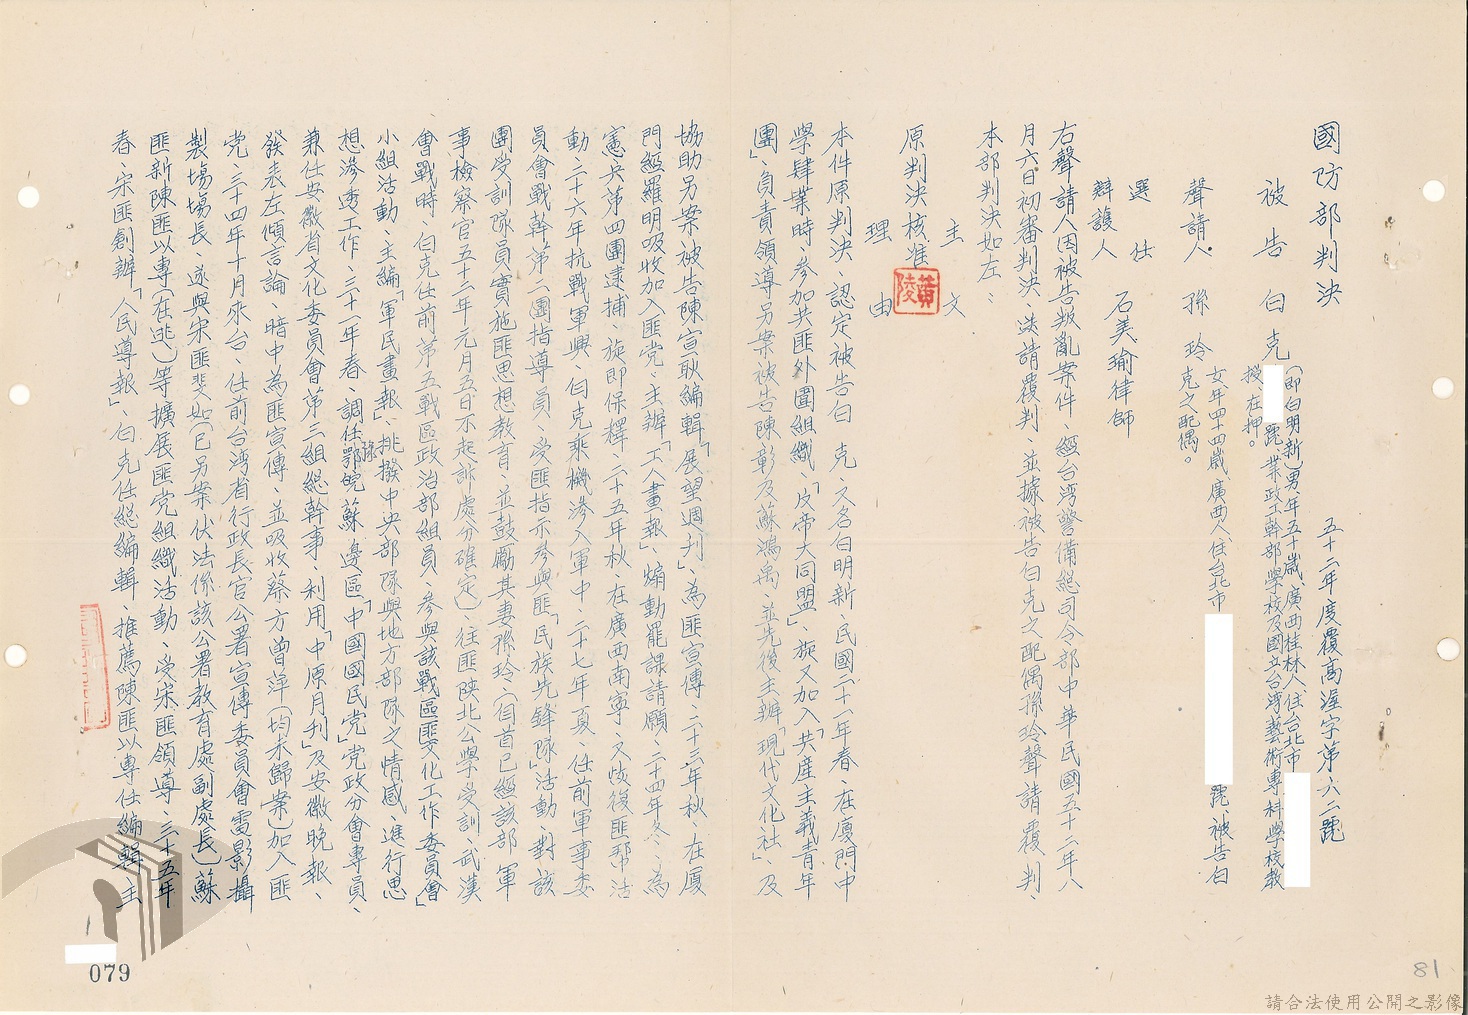 國防部判決
五十二年度覆高浧字第六二號
被告 白克（即白明新）男年五十歲、廣西桂林人、住台北市
號、業政工幹部學校及國立台灣藝術專科學校教
授、在押。
聲請人 孫玲 女年四十四歲、廣西人、住台北市 號、被告白
克之配偶。
選任
辯護人 石美瑜律師
右聲請人因被告叛亂案件、經台湾警備總司令部中華民國五十二年八
月六日初審判決、法請覆判、並據被告白克之配偶孫玲聲請覆判、
本部判決如左：
主文
原判決核准
黃陵
理由
本件原判決、認定被告白克、又名白明新、民國二十一年春、在廈門中
學肄業時、參加共匪外圍組織、「反帝大同盟」、旋又加入「共產主義青年
團」、負責領導另案被告陳彰及蘇鴻禹、並先後主辦「現代文化社」、及
協助另案被告陳宣耿編輯「展望週刊」、為匪宣傳、二十三年秋、在廈
門經羅明吸收加入匪党、主辦「工人畫報」、煽動罷課請願、二十四年冬、為
憲兵第四團逮捕、旋即保釋、二十五年秋、在廣西南寧、又恢復匪帮活
動、二十六年抗戰軍興、白克乘機滲入軍中、二十七年夏、任前軍事委
員會戰幹第二團指導員、受匪指示參與匪「民族先鋒隊」活動、對該
團受訓隊員實施匪思想教育、並鼓勵其妻孫玲、（自首已經該部軍
事檢察官五十二年元月五日不起訴處分確定）、往匪陝北公學受訓、武漢
會戰時、白克任前第五戰區政治部組員、參與該戰區匪文化工作委員會」
小組活動、主編「軍民畫報」、挑撥中央部隊與地方部隊之情感、進行思
想滲透工作、三十一年春、調任鄂豫皖蘇邊區「中國國民党」党政分會專員、
兼任安徽省文化委員會第三組總幹事、利用「中原月刊」及安徽晚報、
發表左傾言論、暗中為匪宣傳、並吸收蔡方曾萍（均未歸案）加入匪
党、三十四年十月來台、任前台湾省行政長官公署宣傳委員會電影攝
製場場長、遂與宋匪斐如（已另案伏法係該公署教育處副處長）蘇
匪新陳匪以專（在逃）等擴展匪党組織活動、受宋匪領導、三十五年
春、宋匪創辦「人民導報」、白克任總編輯、推薦陳匪以專任編輯、主
079
81
請合法使用公開之影像